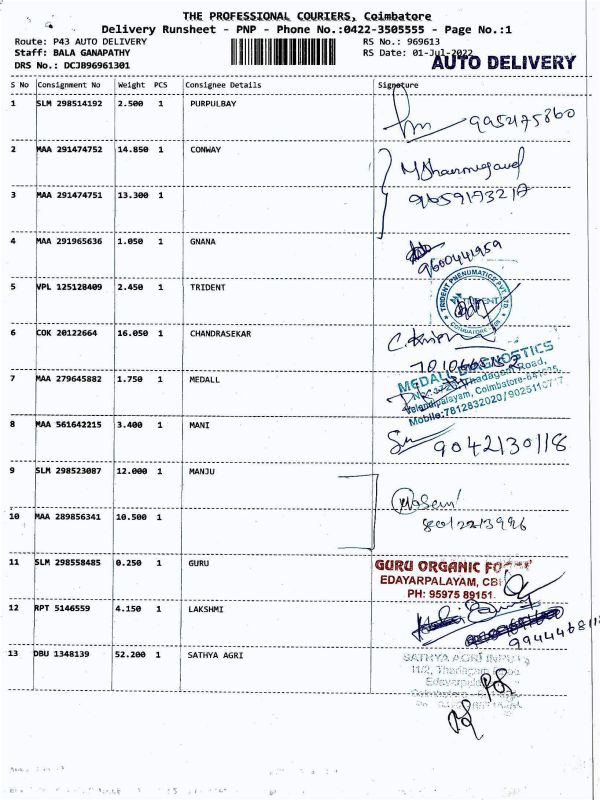 THE PROFESSIONAL COURIERS, Coimbatore
Delivery Runsheet - PNP - Phone No.:0422-3505555 - Page No.:1
Route: P43 AUTO DELIVERY RS No.: 969613
Staff: BALA GANAPATHY RS Date: 01-Jul-2022
AUTO DELIVERY
DRS No.: DCJB96961301
S No Consignment No Weight PCS Consignee Details Signature
1 SLM 298514192 2.500 1 PURPULBAY
9952175860
2 MAA 291474752 14.850 1 CONWAY
9659173217
3 MAA 291474751 13.300 1
4 MAA 291965636 1.050 1 GNANA
9600441959
5 VPL 125128409 2.450 1 TRIDENT
TRIDENT PNEUMATICS PVT. LTD
TRIDENT
COIMBATORE
6 COK 20122664 16.050 1 CHANDRASEKAR
7 MAA 279645882 1.750 1 MEDALL
MEDALL DIAGNOSTICS
Thadagam Road,
Velandipalayam, Coimbatore-641025,
Mobile:7812832020/
8 MAA 561642215 3.400 1 MANI
9042130118
9 SLM 298523087 12.000 1 MANJU
8012213996
10 MAA 289856341 10.500 1
11 SLM 298558485 0.250 1 GURU
GURU ORGANIC
EDAYARPALAYAM, CBE
PH: 95975 89151
12 RPT 5146559 4.150 1 LAKSHMI
13 DBU 1348139 52.200 1 SATHYA AGRI
SATHYA AGRI INPUTS
11/2, Thadagam Road